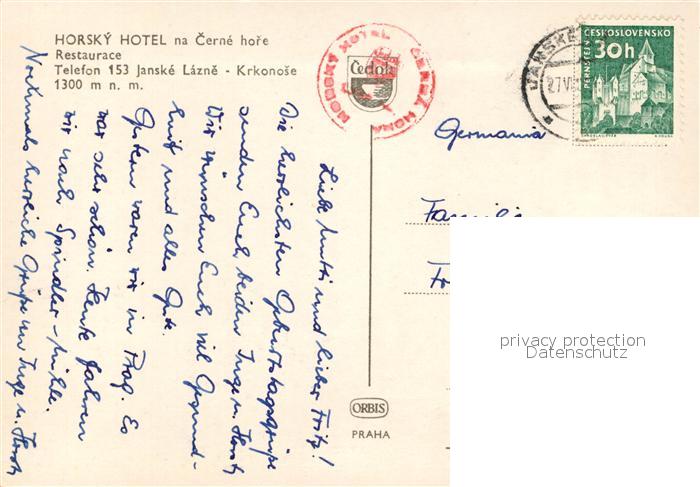 HORSKÝ HOTEL na Černé hoře
Restaurace
Telefon 153 Janské Lázně - Krkonoše
1300 m n. m.
HORSKÝ HOTEL ČERNÁ HORA
Čedok
JANSKÉ
27 VI
ČESKOSLOVENSKO
30h
PERNŠTEJN
Germania
Familie
Liebe Mutti und lieber Fritz!
Die herzlichsten Geburtstagsgrüße
senden Euch beiden Inge u. Horst
Wir wünschen Euch viel Gesund-
heit und alles Gute.
Gestern waren wir in Prag. Es
war sehr schön. Heute fahren
wir nach Spindler-Mühle.
Nochmals herzliche Grüße von Inge u. Horst
ORBIS
PRAHA
privacy protection
Datenschutz